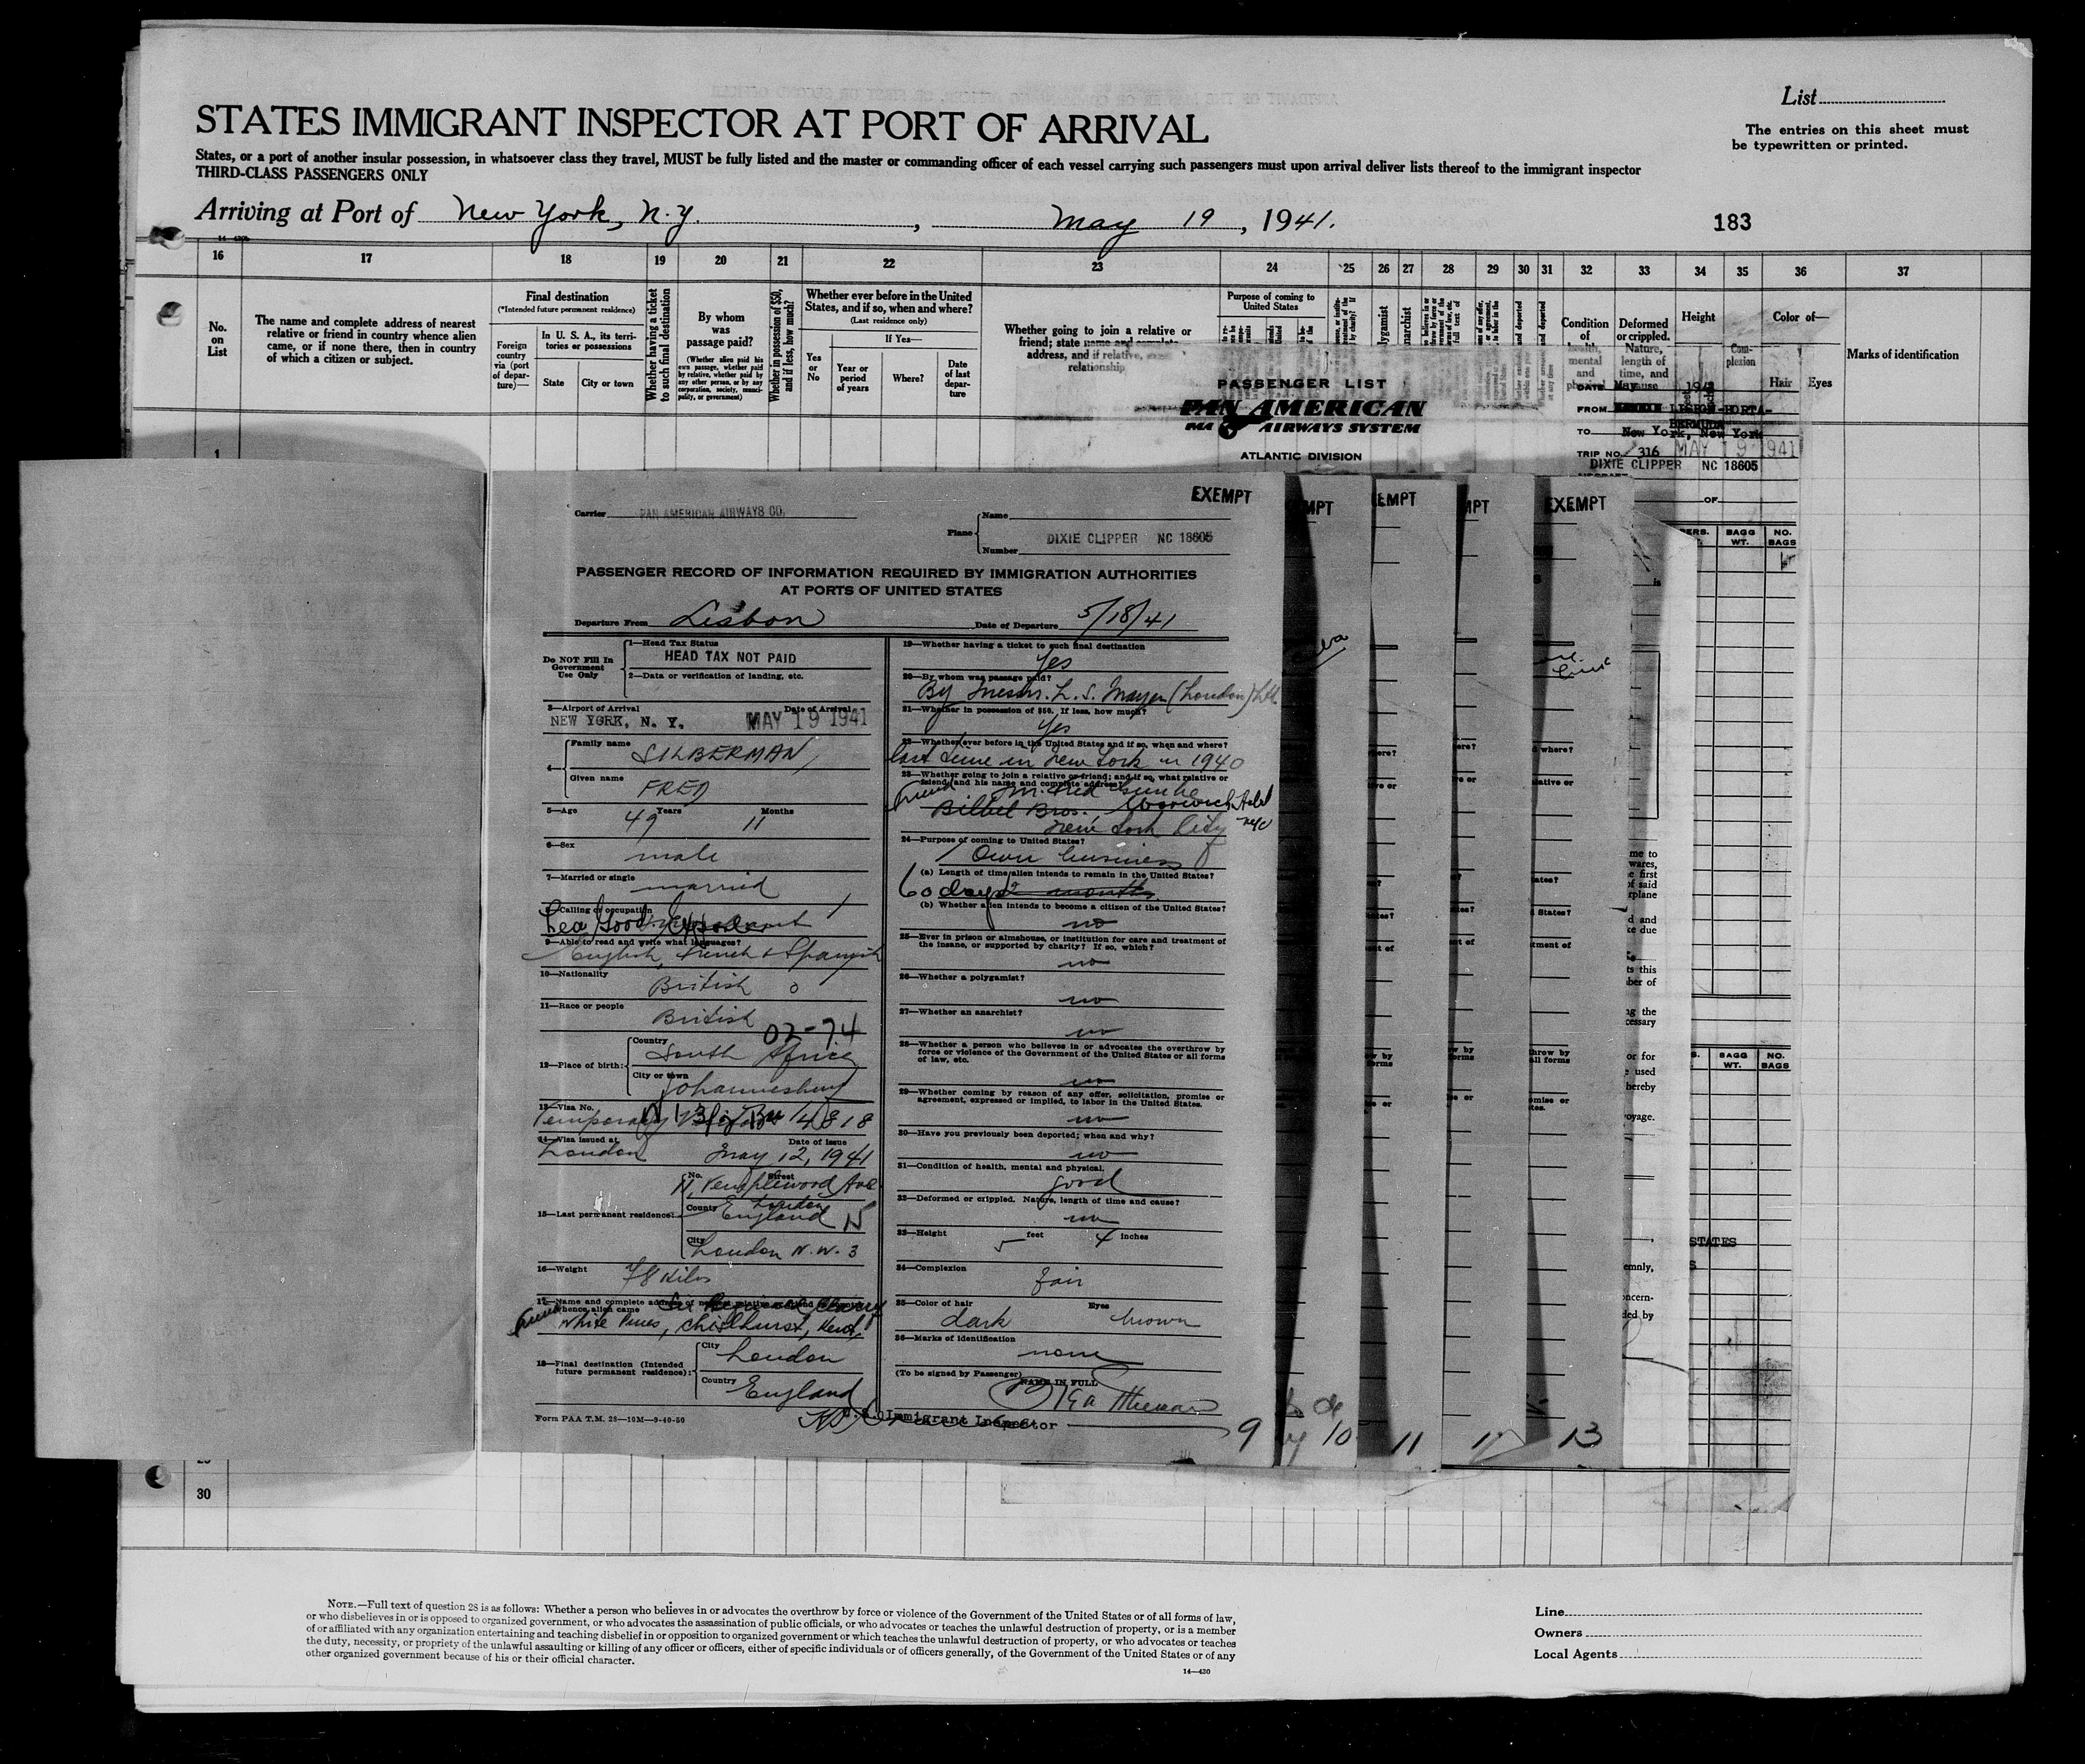 List
The entries on this sheet must
be typewritten or printed.
STATES IMMIGRANT INSPECTOR AT PORT OF ARRIVAL
States, or a port of another insular possession, in whatsoever class they travel, MUST be fully listed and the master or commanding officer of each vessel carrying such passengers must upon arrival deliver lists thereof to the immigrant inspector
THIRD-CLASS PASSENGERS ONLY
Arriving at Port of New York, N.Y. , May 19 , 1941.
183
16 17 18 19 20 21 22 23 24 25 26 27 28 29 30 31 32 33 34 35 36 37
No.
on
List
The name and complete address of nearest
relative or friend in country whence alien
came, or if none there, then in country
of which a citizen or subject.
Final destination
(*Intended future permanent residence)
Foreign
country
via (port
of depar-
ture)—
In U. S. A., its terri-
tories or possessions
State
City or town
Whether having a ticket
to such final destination
By whom
was
passage paid?
(Whether alien paid his
own passage, whether paid
by relative, whether paid by
any other person, or by any
corporation, society, munici-
pality, or government)
Whether in possession of $50,
and if less, how much?
Whether ever before in the United
States, and if so, when and where?
(Last residence only)
Yes
or
No
If Yes—
Year or
period
of years
Where?
Date
of last
depar-
ture
Whether going to join a relative or
friend; state name and complete
address, and if relative,
relationship
Purpose of coming to
United States
Condition
of
health,
mental
and
Deformed
or crippled.
Nature,
length of
time, and
cause
Height
Com-
plexion
Color of—
Hair Eyes
Marks of identification
PASSENGER LIST
PAN AMERICAN
PAA AIRWAYS SYSTEM
ATLANTIC DIVISION
DATE May 1941
FROM LISBON-HORTA-
BERMUDA
TO New York, New York
TRIP NO. 316 MAY 19 1941
DIXIE CLIPPER NC 18605
OF
BAGG
WT.
NO.
BAGS
EXEMPT
EXEMPT
Carrier PAN AMERICAN AIRWAYS CO.
Plane Name
Number DIXIE CLIPPER NC 18605
PASSENGER RECORD OF INFORMATION REQUIRED BY IMMIGRATION AUTHORITIES
AT PORTS OF UNITED STATES
Departure From Lisbon Date of Departure 5/18/41
Do NOT Fill In
Government
Use Only
1—Head Tax Status
HEAD TAX NOT PAID
2—Data or verification of landing, etc.
3—Airport of Arrival Date of Arrival
NEW YORK, N. Y. MAY 19 1941
4—
Family name SILBERMAN
Given name FRED
5—Age 49 Years 11 Months
6—Sex male
7—Married or single married
8—Calling or occupation
9—Able to read and write what languages?
English, French & Spanish
10—Nationality
British
11—Race or people
British
02-74
12—Place of birth:
Country South Africa
City or town
Johannesburg
13—Visa No.
Temporary
14—Visa issued at Date of issue
London May 12, 1941
15—Last permanent residence:
No. Street
11, Templewood Ave
County London
England
City London N.W. 3
16—Weight 78 kilos
17—Name and complete address of nearest relative
whence alien came
White Pines, Chislhurst, Kent
18—Final destination (Intended
future permanent residence):
City London
Country England
Form PAA T.M. 28—10M—9-40-50
19—Whether having a ticket to such final destination
Yes
20—By whom was passage paid?
By Messrs. L. S. Mayer (London) Ltd
21—Whether in possession of $50. If less, how much?
Yes
22—Whether ever before in the United States and if so, when and where?
last time in New York in 1940
23—Whether going to join a relative or friend; and if so, what relative or
friend and his name and complete address?
friend
Bros. Warwick Hotel
New York City NYC
24—Purpose of coming to United States?
Own business
(a) Length of time alien intends to remain in the United States?
60 days 2 months
(b) Whether alien intends to become a citizen of the United States?
no
25—Ever in prison or almshouse, or institution for care and treatment of
the insane, or supported by charity? If so, which?
no
26—Whether a polygamist?
no
27—Whether an anarchist?
no
28—Whether a person who believes in or advocates the overthrow by
force or violence of the Government of the United States or all forms
of law, etc.
no
29—Whether coming by reason of any offer, solicitation, promise or
agreement, expressed or implied, to labor in the United States.
no
30—Have you previously been deported; when and why?
no
31—Condition of health, mental and physical.
good
32—Deformed or crippled. Nature, length of time and cause?
no
33—Height 5 feet 4 inches
34—Complexion fair
35—Color of hair Eyes
dark brown
36—Marks of identification
none
(To be signed by Passenger)
NAME IN FULL
U. S. Immigrant Inspector
9 10 11 12 13
30
NOTE.—Full text of question 28 is as follows: Whether a person who believes in or advocates the overthrow by force or violence of the Government of the United States or of all forms of law,
or who disbelieves in or is opposed to organized government, or who advocates the assassination of public officials, or who advocates or teaches the unlawful destruction of property, or is a member
of or affiliated with any organization entertaining and teaching disbelief in or opposition to organized government or which teaches the unlawful destruction of property, or who advocates or teaches
the duty, necessity, or propriety of the unlawful assaulting or killing of any officer or officers, either of specific individuals or of officers generally, of the Government of the United States or of any
other organized government because of his or their official character.
14—430
Line
Owners
Local Agents